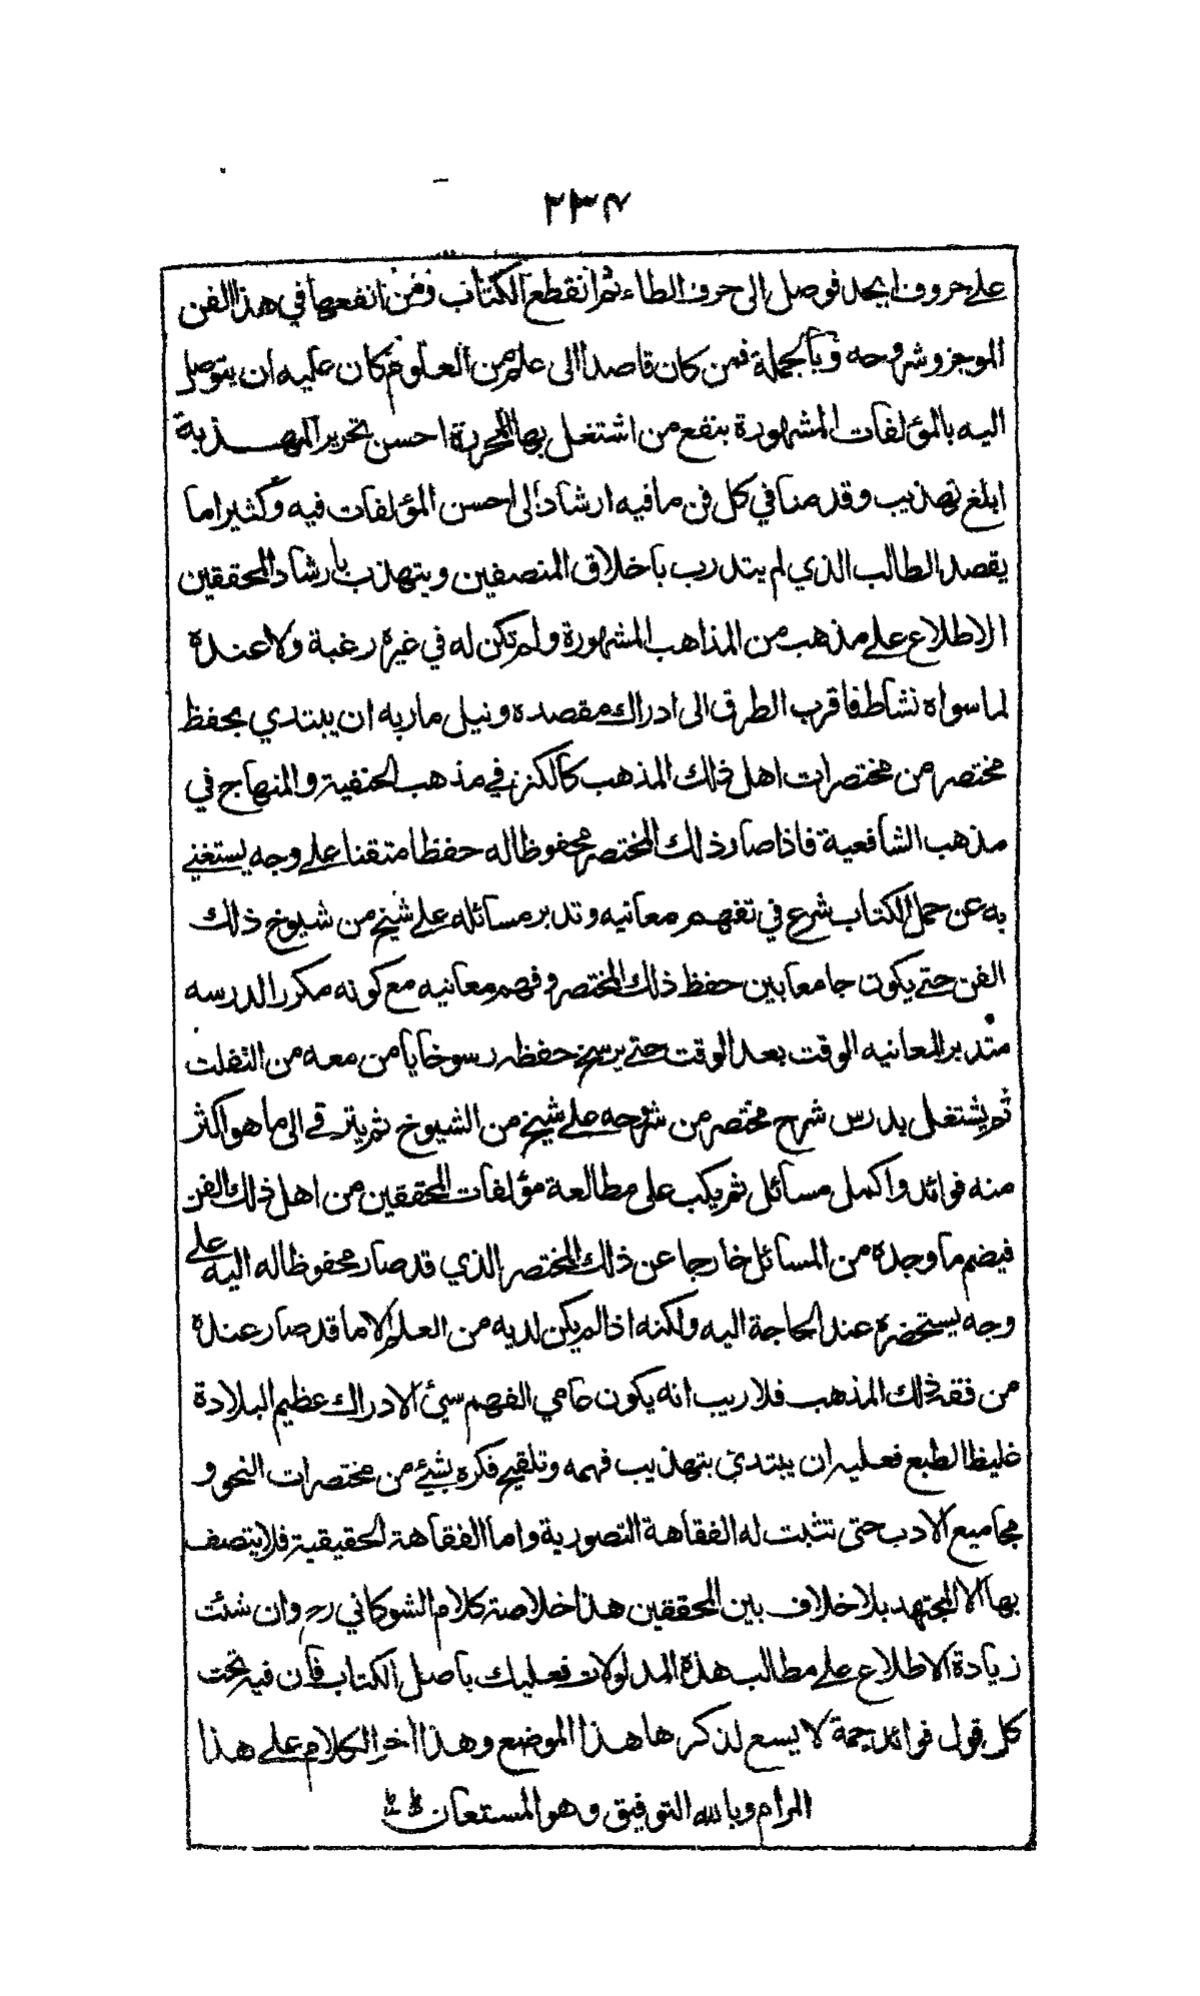 ٢٣٧
على حروف ابجد فوصل الى حرف الطاء ثم انقطع الكتاب ومن انفعها في هذا الفن
الموجز وشروحه وبالجملة فمن كان قاصدا الى علم من العلوم كان عليه ان يتوصل
اليه بالمؤلفات المشهورة بنفع من اشتغل بها المحررة احسن تحرير المهذبة
ابلغ تهذيب وقد منا في كل فن ما فيه ارشاد الى احسن المؤلفات فيه وكثيرا ما
يقصد الطالب الذي لم يتدرب باخلاق المنصفين ويتهذب بارشاد المحققين
الاطلاع على مذهب من المذاهب المشهورة ولم تكن له في غيره رغبة ولا عنده
لما سواه نشاط فاقرب الطرق الى ادراك مقصده ونيل ماربه ان يبتدي بحفظ
مختصر من مختصرات اهل ذلك المذهب كالكنز في مذهب الحنفية والمنهاج في
مذهب الشافعية فاذا صار ذلك المختصر محفوظا له حفظا متقنا على وجه يستغني
به عن حمل الكتاب شرع في تفهم معانيه وتدبر مسائله على شيخ من شيوخ ذلك
الفن حتى يكون جامعا بين حفظ ذلك المختصر وفهم معانيه مع كونه مكررا لدرسه
متدبرا لمعانيه الوقت بعد الوقت حتى يرسخ حفظه رسوخا يامن معه من التفلت
ثم يشتغل بدرس شرح مختصر من شروحه على شيخ من الشيوخ ثم يترقى الى ما هو اكثر
منه فوائد واكمل مسائل ثم يكب على مطالعة مؤلفات المحققين من اهل ذلك الفن
فيضم ما وجده من المسائل خارجا عن ذلك المختصر الذي قد صار محفوظا له اليه على
وجه يستحضره عند الحاجة اليه ولكنه اذا لم يكن لديه من العلم الا ما قد صار عنده
من فقه ذلك المذهب فلا ريب انه يكون عامي الفهم سيئ الادراك عظيم البلادة
غليظ الطبع فعليه ان يبتدئ بتهذيب فهمه وتلقيح فكره بشئ من مختصرات النحو و
مجاميع الادب حتى تثبت له الفقاهة التصورية واما الفقاهة الحقيقية فلا يتصف
بها الا المجتهد بلا خلاف بين المحققين هذا خلاصة كلام الشوكاني رح وان شئت
زيادة الاطلاع على مطالب هذه المدلولات فعليك باصل الكتاب فان فيه تحت
كل قول فوائد جمة لا يسع لذكرها هذا الموضع وهذا اخر الكلام على هذا
المرام وبالله التوفيق وهو المستعان